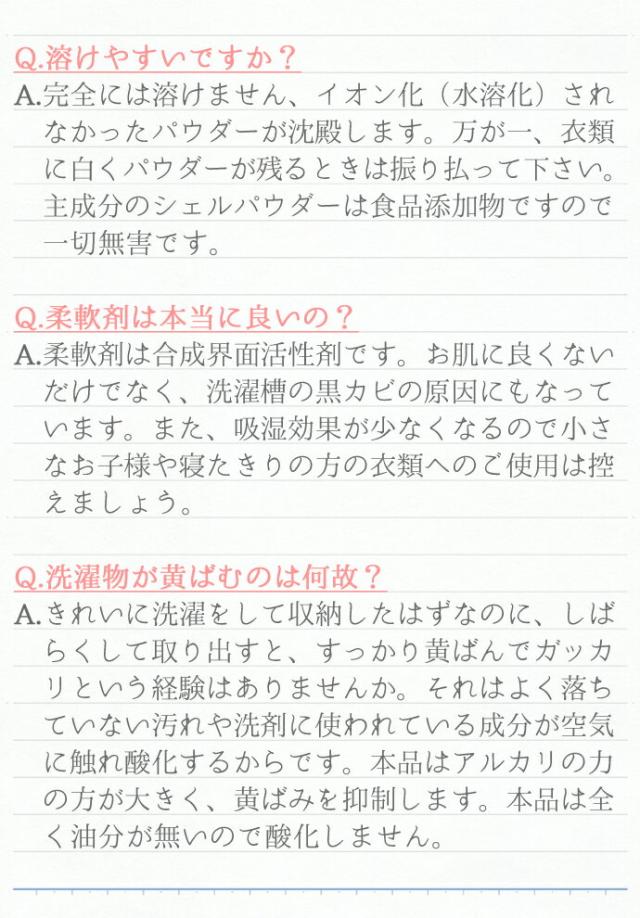 Q.溶けやすいですか？
A.完全には溶けません、イオン化（水溶化）され
なかったパウダーが沈殿します。万が一、衣類
に白くパウダーが残るときは振り払って下さい。
主成分のシェルパウダーは食品添加物ですので
一切無害です。
Q.柔軟剤は本当に良いの？
A.柔軟剤は合成界面活性剤です。お肌に良くない
だけでなく、洗濯槽の黒カビの原因にもなって
います。また、吸湿効果が少なくなるので小さ
なお子様や寝たきりの方の衣類へのご使用は控
えましょう。
Q.洗濯物が黄ばむのは何故？
A.きれいに洗濯をして収納したはずなのに、しば
らくして取り出すと、すっかり黄ばんでガッカ
リという経験はありませんか。それはよく落ち
ていない汚れや洗剤に使われている成分が空気
に触れ酸化するからです。本品はアルカリの力
の方が大きく、黄ばみを抑制します。本品は全
く油分が無いので酸化しません。